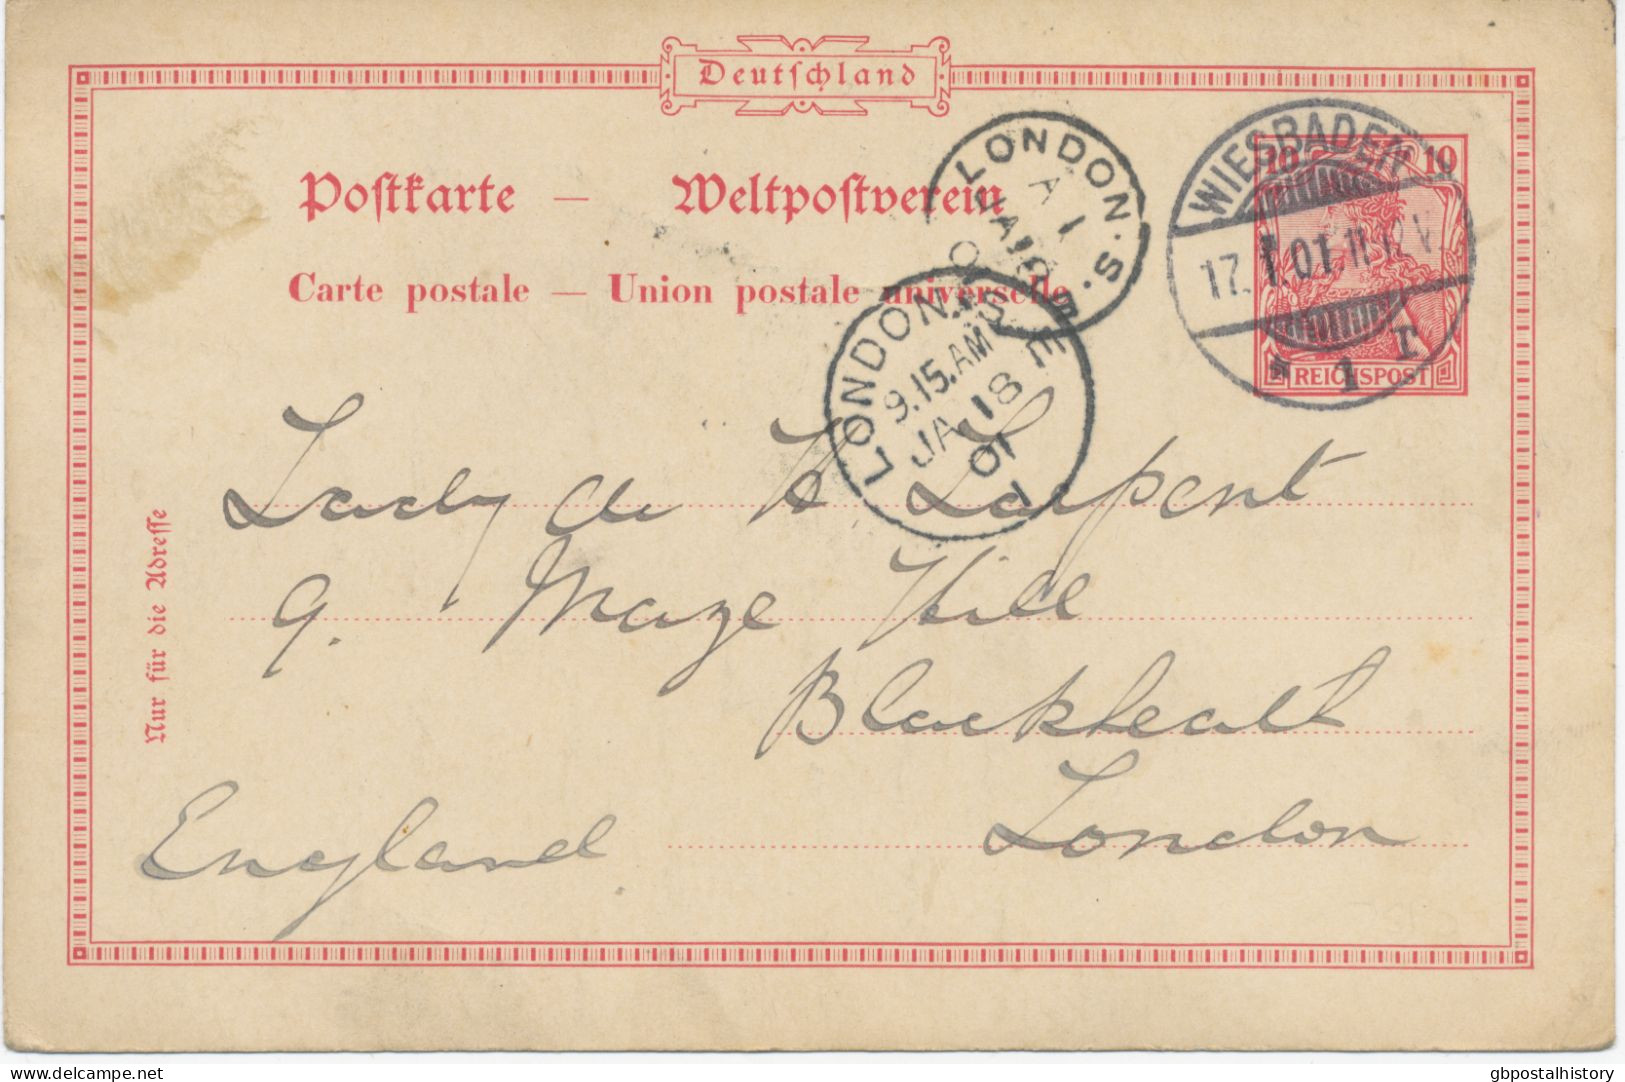 Deutschland
Postkarte — Weltpostverein
Carte postale — Union postale universelle
WIESBADEN
17.1.01.11-12V.
* 1 r
10 10
REICHSPOST
LONDON.S.E
A 1
JA 18
01
LONDON.S.E
9.15.AM
JA 18
01
1
Lady de H Larpent
9. Maze Hill
Blackheath
London
England
Nur für die Adresse
delcampe.net
gbpostalhistory